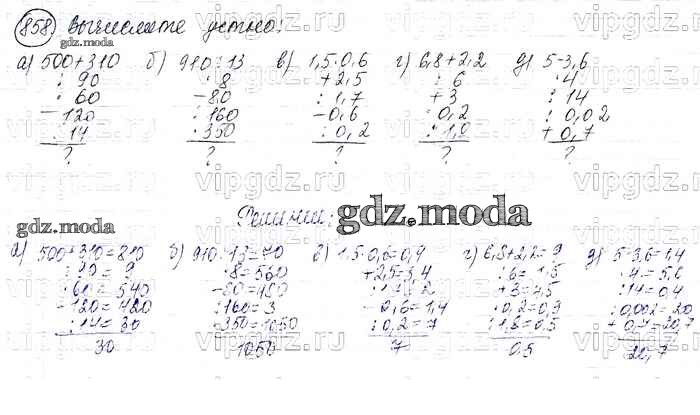 858) Вычислите устно:
gdz.moda
а) 500+310 б) 910:13 в) 1,5·0,6 г) 6,8+2,2 д) 5-3,6
: 90 ·8 +2,5 : 6 ·4
· 60 -80 : 1,7 +3 : 14
-120 : 160 -0,6 · 0,2 : 0,02
: 14 · 350 : 0,2 : 1,8 + 0,7
? ? ? ? ?
Решении:
gdz.moda
gdz.moda
а) 500+310=810 б) 910:13=70 в) 1,5·0,6=0,9 г) 6,8+2,2=9 д) 5-3,6=1,4
:90=9 ·8=560 +2,5=3,4 :6=1,5 ·4=5,6
·60=540 -80=480 :1,7=2 +3=4,5 :14=0,4
-120=420 :160=3 -0,6=1,4 ·0,2=0,9 :0,002=20
:14=30 ·350=1050 :0,2=7 :1,8=0,5 +0,7=20,7
30 1050 7 0,5 20,7